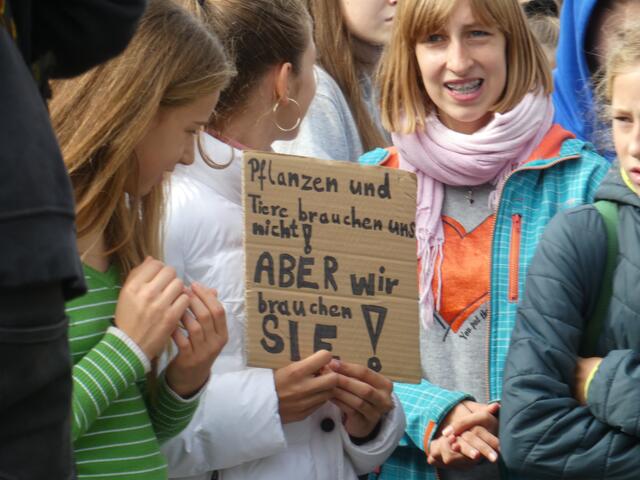 Pflanzen und
Tiere brauchen uns
nicht!
ABER wir
brauchen
SIE!
You